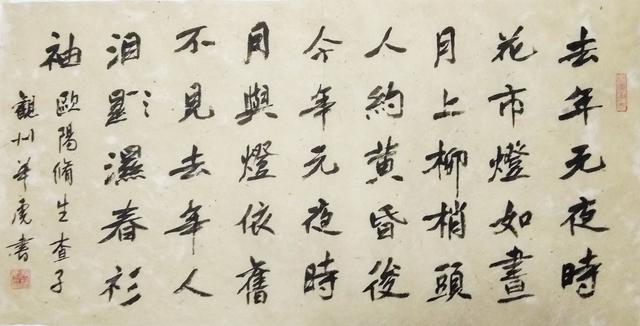 去年元夜時
花市燈如晝
月上柳梢頭
人約黃昏後
今年元夜時
月與燈依舊
不見去年人
泪點〻濕春衫
袖
歐陽脩生查子
觀州虎書